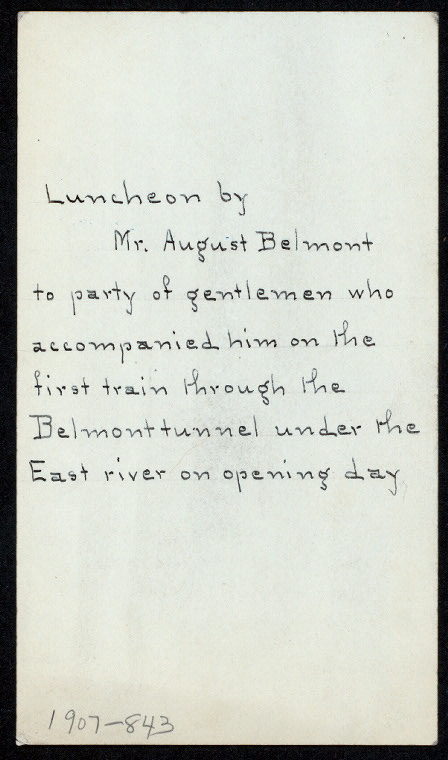 Luncheon by
Mr. August Belmont
to party of gentlemen who
accompanied him on the
first train through the
Belmont tunnel under the
East river on opening day
1907-843